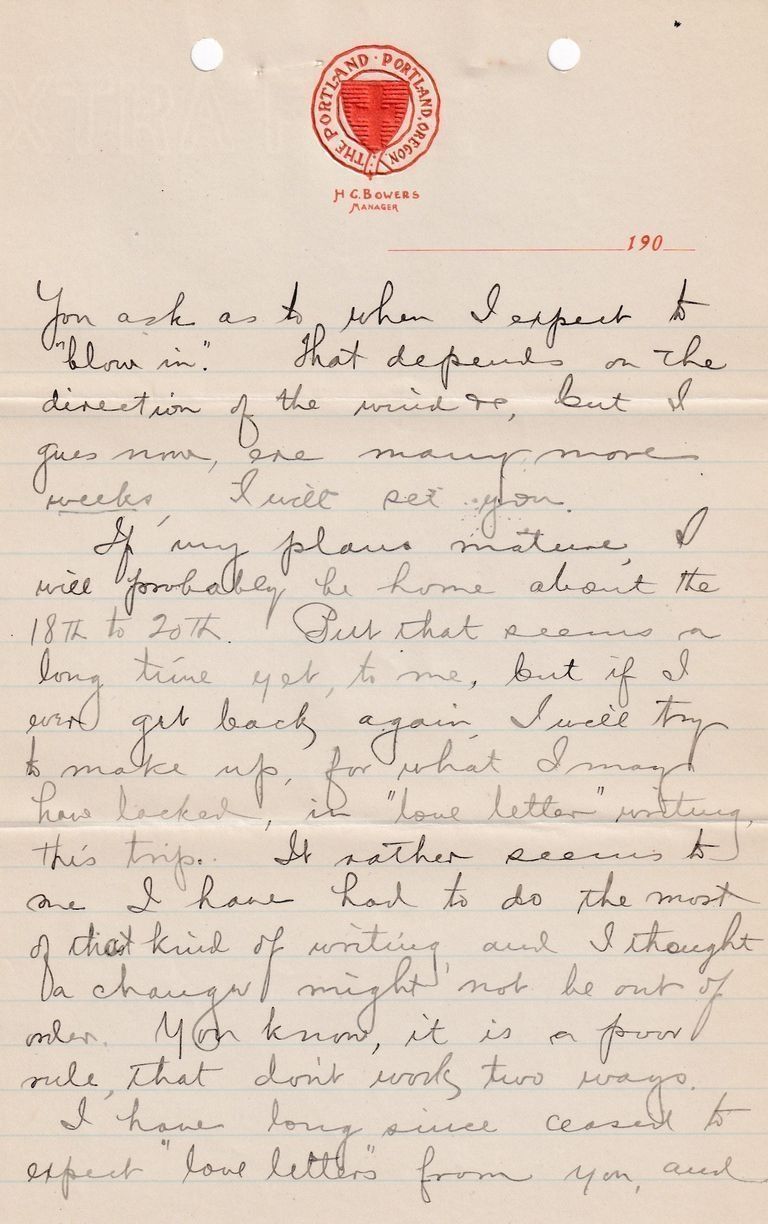 THE PORTLAND · PORTLAND, OREGON
H C. BOWERS
MANAGER
190
You ask as to when I expect to
"blow in". That depends on the
direction of the wind &c, but I
gues now, ere many more
weeks, I will see you.
If my plans mature, I
will probably be home about the
18th to 20th. But that seems a
long time yet, to me, but if I
ever get back again, I will try
to make up, for what I may
have lacked, in "love letter" writing,
this trip. It rather seems to
me I have had to do the most
of that kind of writing and I thought
a change might not be out of
order. You know, it is a poor
rule, that don't work two ways.
I have long since ceased to
expect "love letters" from you, and